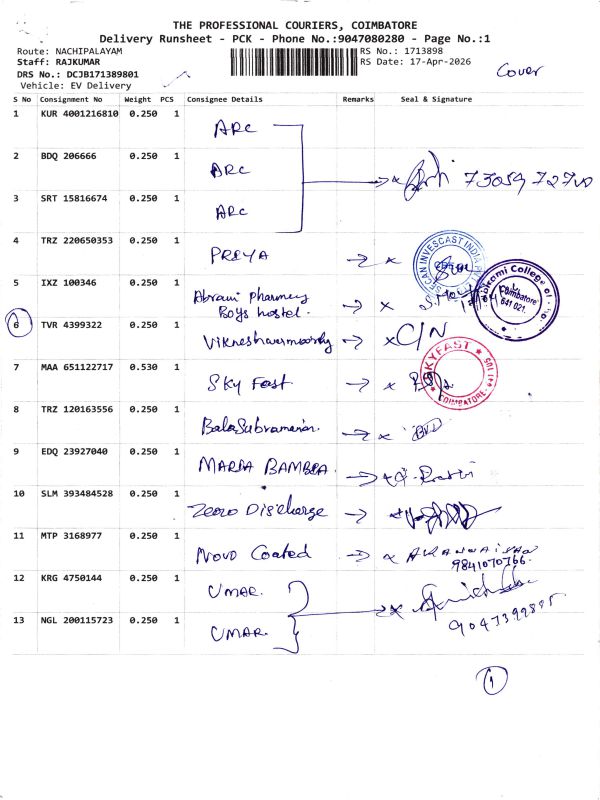 THE PROFESSIONAL COURIERS, COIMBATORE
Delivery Runsheet - PCK - Phone No.:9047080280 - Page No.:1
Route: NACHIPALAYAM
Staff: RAJKUMAR
DRS No.: DCJB171389801
Vehicle: EV Delivery
RS No.: 1713898
RS Date: 17-Apr-2026
Cover
S No Consignment No Weight PCS Consignee Details Remarks Seal & Signature
1 KUR 4001216810 0.250 1 ARC
2 BDQ 206666 0.250 1 ARC
3 SRT 15816674 0.250 1 ARC
4 TRZ 220650353 0.250 1 PREYA
5 IXZ 100346 0.250 1 Abrami Pharmacy
Boys hostel.
6 TVR 4399322 0.250 1 Vikneshwarmoorthy C/N
7 MAA 651122717 0.530 1 Sky Fast
SKYFAST
COIMBATORE
8 TRZ 120163556 0.250 1 BalaSubramanian.
9 EDQ 23927040 0.250 1 MARIA BAMBRA.
10 SLM 393484528 0.250 1 Zero Discharge
11 MTP 3168977 0.250 1 Novo Coated
9841070766.
12 KRG 4750144 0.250 1 UMAR.
13 NGL 200115723 0.250 1 UMAR.
College of
Coimbatore
641 021.
1